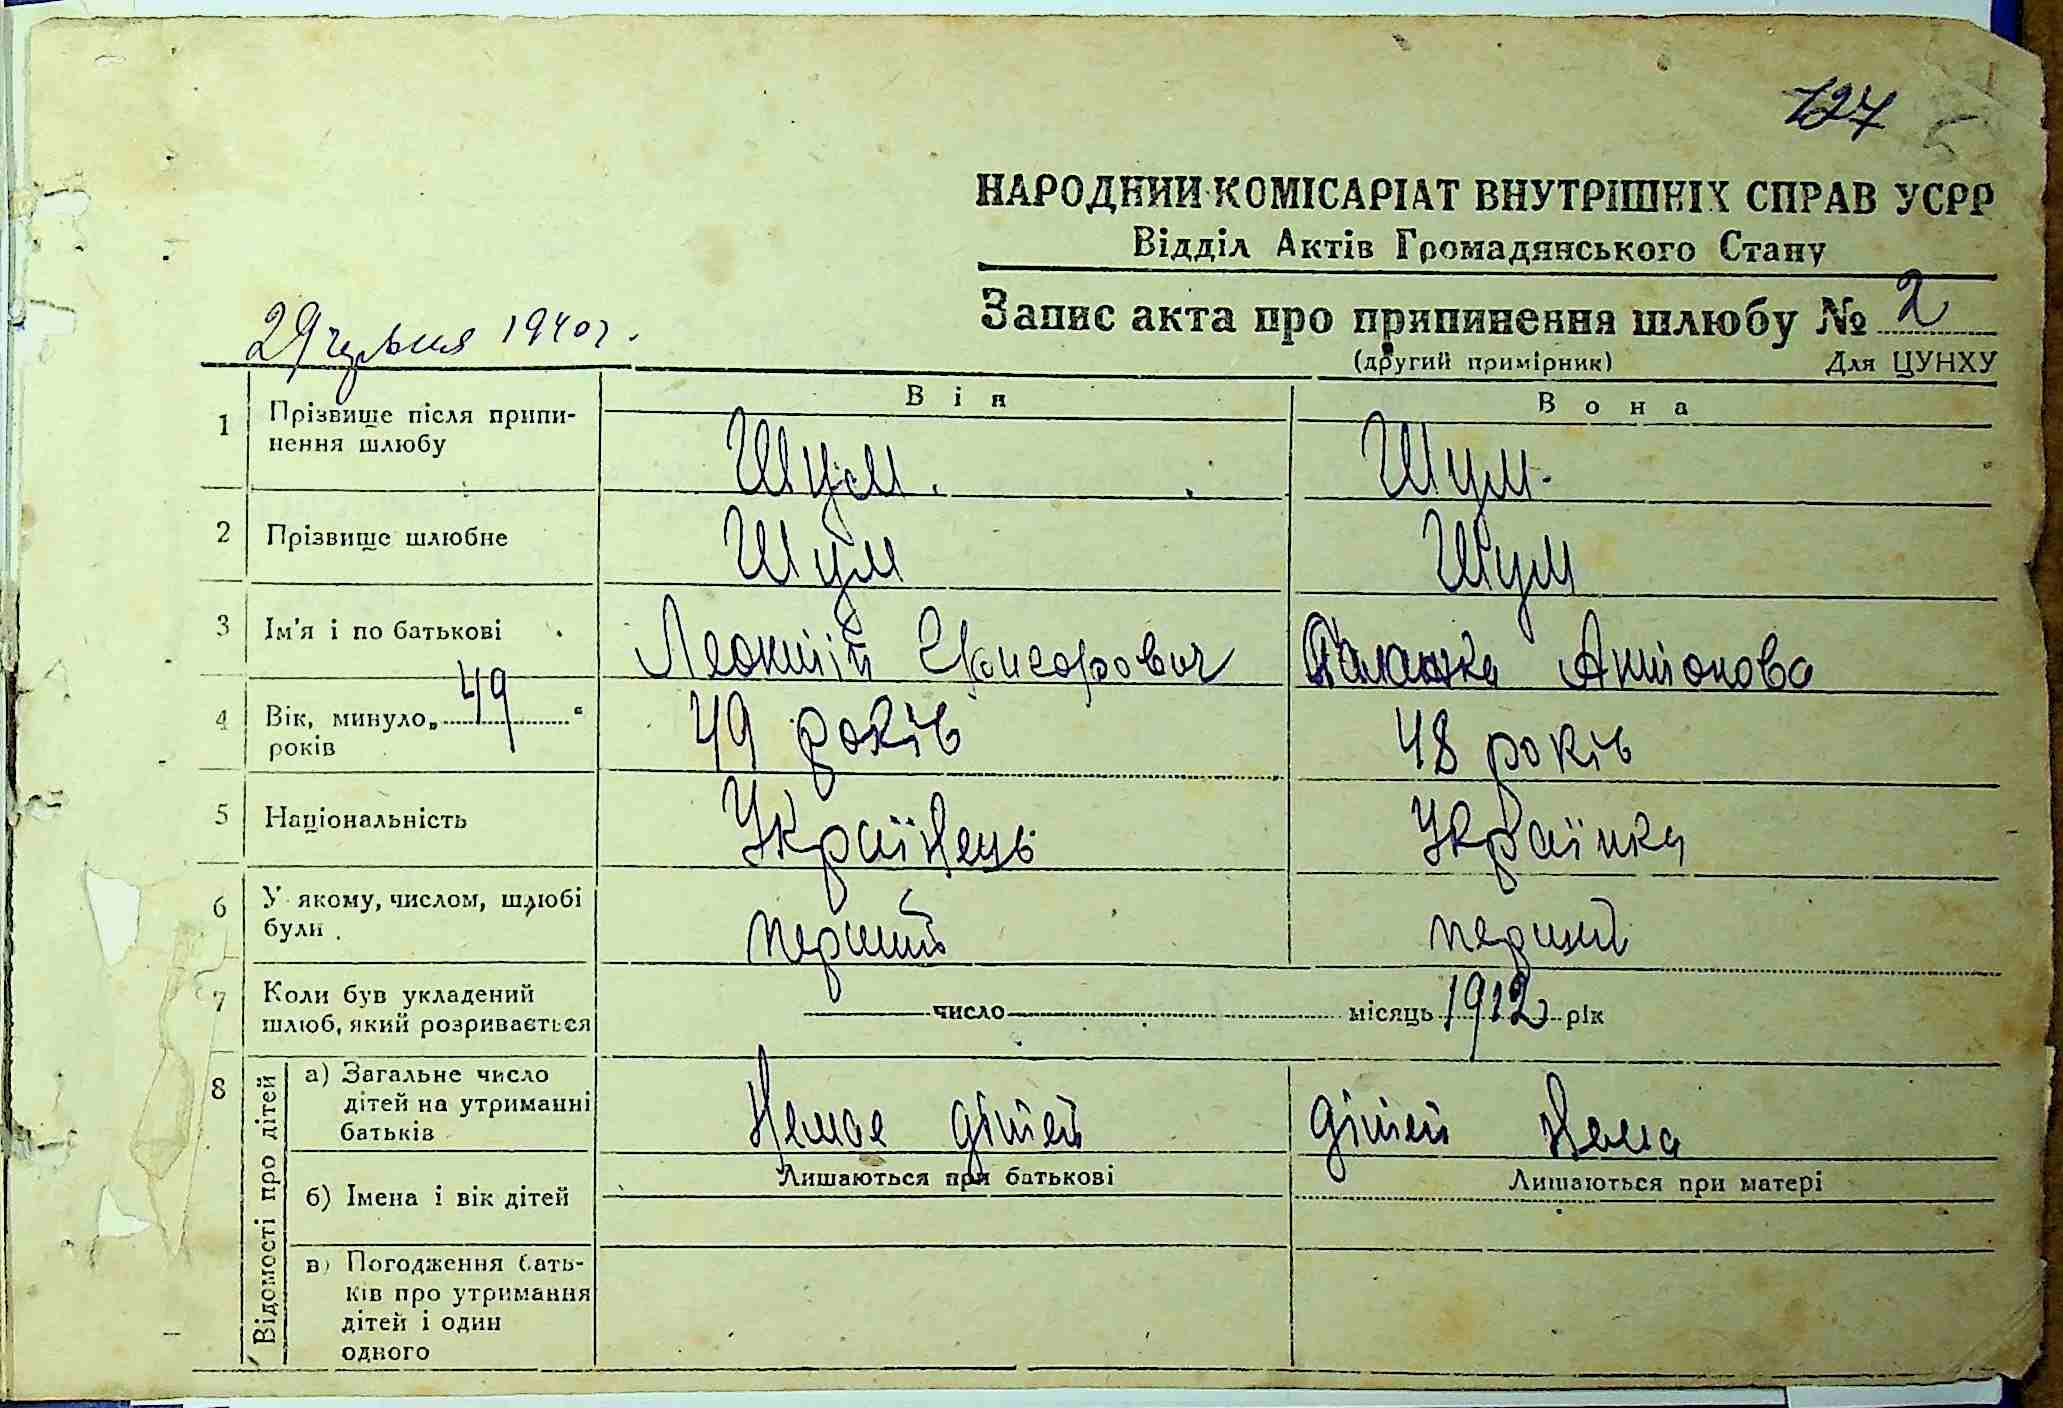 127
НАРОДНИЙ КОМІСАРІАТ ВНУТРІШНІХ СПРАВ УСРР
Відділ Актів Громадянського Стану
Запис акта про припинення шлюбу № 2
(другий примірник) Для ЦУНХУ
29 червня 1940 г.
Він Вона
1 Прізвище після припи-
нення шлюбу Шум. Шум.
2 Прізвище шлюбне Шум Шум
3 Ім'я і по батькові Леонтій Григорович Палажка Антонова
4 Вік, минуло „ 49 “
років 49 років 48 років
5 Національність Українець Українка
6 У якому, числом, шлюбі
були перший перший
7 Коли був укладений
шлюб, який розривається число місяць 1912 рік
8 Відомості про дітей
а) Загальне число
дітей на утриманні
батьків Немає дітей дітей Нема
Лишаються при батькові Лишаються при матері
б) Імена і вік дітей
в) Погодження бать-
ків про утримання
дітей і один
одного